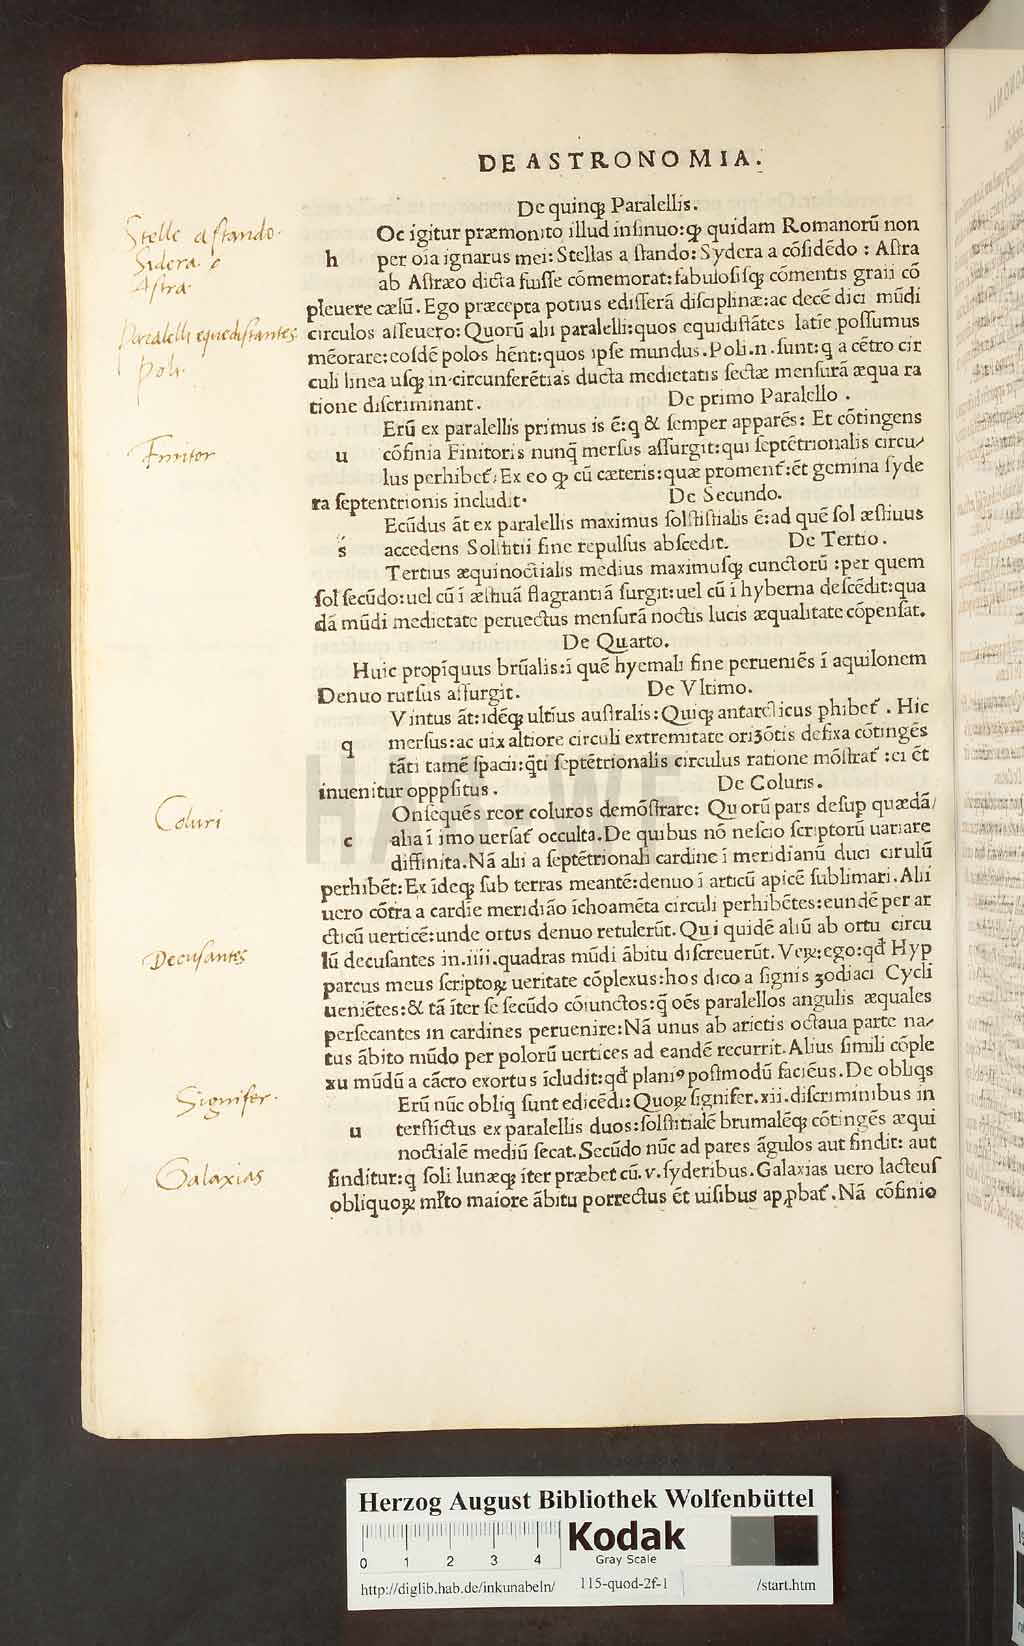 DE ASTRONOMIA.
De quinqꝫ Paralellis.
Stelle a stando.
Oc igitur præmonito illud insinuo:ꝙ quidam Romanorū non
Sidera
h per oīa ignarus mei: Stellas a stando: Sydera a cōsidēdo: Astra
Astra
ab Astræo dicta fuisse cōmemorat: fabulosisqꝫ cōmentis graii cō
pleuere cælū. Ego præcepta potius edisserā disciplinæ: ac decē dici mūdi
Paralelli equedistantes
circulos asseuero: Quorū alii paralelli: quos equidistātes latie possumus
mēorare: eosdē polos hēnt: quos ipse mundus. Poli.n.sunt:q a cētro cir
Poli.
culi linea usqꝫ in circunferētias ducta medietatis sectæ mensurā æqua ra
tione discriminant. De primo Paralello.
Erū ex paralellis primus is ē:q & semper apparēs: Et cōtingens
Finitor
u cōfinia Finitoris nunq̄ mersus assurgit: qui septētrionalis circu-
lus perhibet̄: Ex eo ꝙ cū cæteris: quæ proment̄: ēt gemina syde
ra septentrionis includit. De Secundo.
Ecūdus āt ex paralellis maximus solstitialis ē: ad quē sol æstiuus
s accedens Solstitii fine repulsus abscedit. De Tertio.
Tertius æquinoctialis medius maximusqꝫ cunctorū: per quem
sol secūdo: uel cū ī æstiuā flagrantiā surgit: uel cū ī hyberna descēdit: qua
dā mūdi medietate peruectus mensurā noctis lucis æqualitate cōpensat.
De Quarto.
Huic propīquus brūalis: ī quē hyemali fine perueniēs ī aquilonem
Denuo rursus assurgit. De Vltimo.
Vintus āt: idēqꝫ ultīus australis: Quiqꝫ antarcticus ꝑhibet̄. Hic
q mersus: ac uix altiore circuli extremitate oriꝫōtis defixa cōtingēs
tāti tamē spacii: q̄ti septētrionalis circulus ratione mōstrat̄: ei ēt
inuenitur opppsitus. De Coluris.
Coluri
Onsequēs reor coluros demōstrare: Quorū pars desuꝑ quædā/
c alia ī imo uersat̄ occulta. De quibus nō nescio scriptorū uariare
diffinita. Nā alii a septētrionali cardine ī meridianū duci cirulū
perhibēt: Ex īdeqꝫ sub terras meantē: denuo ī articū apicē sublimari. Alii
uero cōtra a cardīe meridiāo īchoamēta circuli perhibētes: eundē per ar
cticū uerticē: unde ortus denuo retulerūt. Qui quidē aliū ab ortu circu
Decusantes
lū decusantes in.iiii.quadras mūdi ābitu discreuerūt. Veꝝ: ego: qđ Hyp
parcus meus scriptoꝝ ueritate cōplexus: hos dico a signis ꝫodiaci Cycli
ueniētes: & tā īter se secūdo cōiunctos: q̄ oēs paralellos angulis æquales
persecantes in cardines peruenire: Nā unus ab arietis octaua parte na-
tus ābito mūdo per polorū uertices ad eandē recurrit. Alius simili cōple
xu mūdū a cācro exortus īcludit: qđ planiꝰ postmodū faciēus. De obliqs
Signifer.
Erū nūc obliq sunt edicēdi: Quoꝝ signifer.xii.discriminibus in
u terstictus ex paralellis duos: solstitialē brumalēqꝫ cōtingēs æqui
noctialē mediū secat. Secūdo nūc ad pares āgulos aut findit: aut
Galaxias
finditur: q soli lunæqꝫ iter præbet cū.v.syderibus. Galaxias uero lacteus
obliquoꝝ ml̄to maiore ābitu porrectus ēt uisibus apꝓbat̄. Nā cōfinio
HAB-WF
Herzog August Bibliothek Wolfenbüttel
0 1 2 3 4
Kodak
Gray Scale
http://diglib.hab.de/inkunabeln/ 115-quod-2f-1 /start.htm